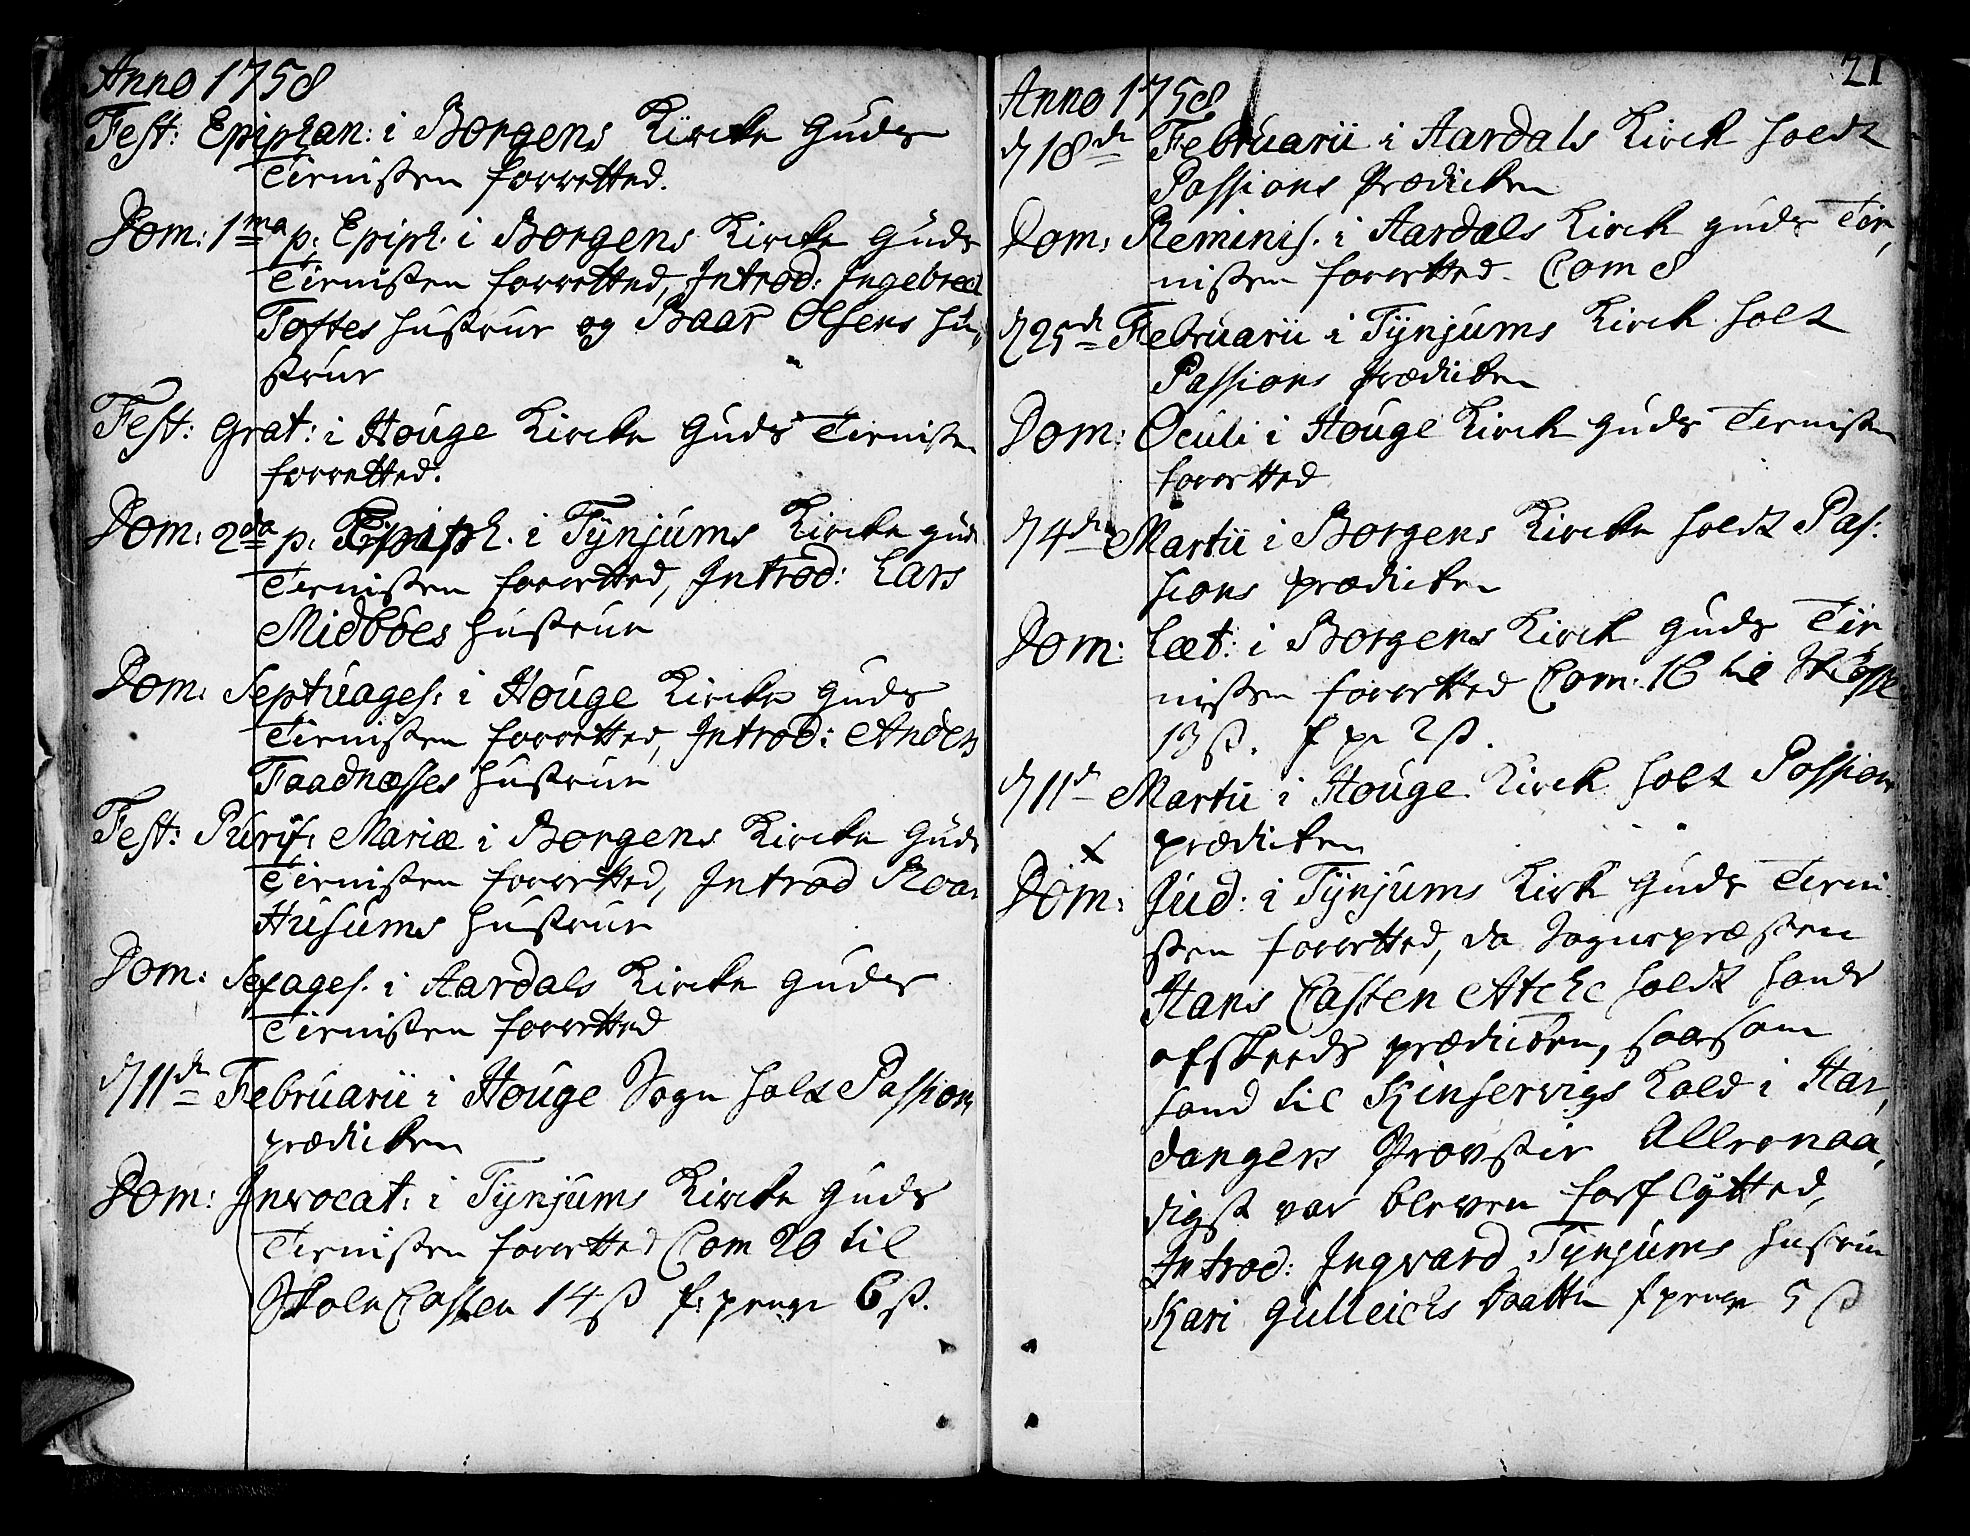 Anno 1758
Fest: Epiphan: i Borgens Kircke Guds
Tienisten forretted.
Dom: 1ma p: Epiph: i Borgens Kircke Guds
Tienisten forretted, Introd: Ingebrect
Toftes hustrue og Baar Olsens hu,
strue
Fest: Grat: i Houge Kircke Guds Tienisten
forretted.
Dom: 2da p: Epiph. i Tÿnjums Kircke guds
Tienisten forretted, Introd: Lars
Midböes hustrue
Dom: Septuages: i Houge Kircke Guds
Tienisten forretted, Introd: Anders
Faadnæsses hustrue
Fest: Purif: Mariæ i Borgens Kircke Guds
Tienisten forretted, Introd Roar
Husums hustrue
Dom: Sexages. i Aardals Kircke Guds
Tienisten forretted
d 11de Februarii i Houge Sogn holt Passions
prædicken
Dom: Invocat: i Tÿnjums Kircke Guds
Tienisten forretted Com 20 til
Skole Cassen 14ß f: penge 6ß.
21
Anno 1758
d 18de Februarii i Aardals Kirck holdt
Passions Prædicken
Dom: Reminis. i Aardals Kirck guds Tie,
nisten forretted. Com 8
d 25de Februarii i Tÿnjums Kirck holt
Passions prædicken
Dom: Oculi i Houge Kirck guds Tienisten
forretted
d 4de Martii i Borgens Kircke holdt Pas:
sions prædicken
Dom: Læt: i Borgens Kirck guds Tie
nisten forretted Com: 16 til
13ß. f pe 2ß.
d 11de Martii i Houge Kirck holt Passions
prædicken
x
Dom: Jud: i Tÿnjums Kirk Guds Tieni
sten forretted, da Sognepræsten
Hans Casten Atche holdt hands
afskeeds prædicken, saasom
hand til Kinservigs Kald i Har,
dangers Provstie Allernaa,
digst var bleven forflÿtted,
Introd: Ingvard Tynjums hustrue
Kari Gulleichs Daatter f penge 5 ß